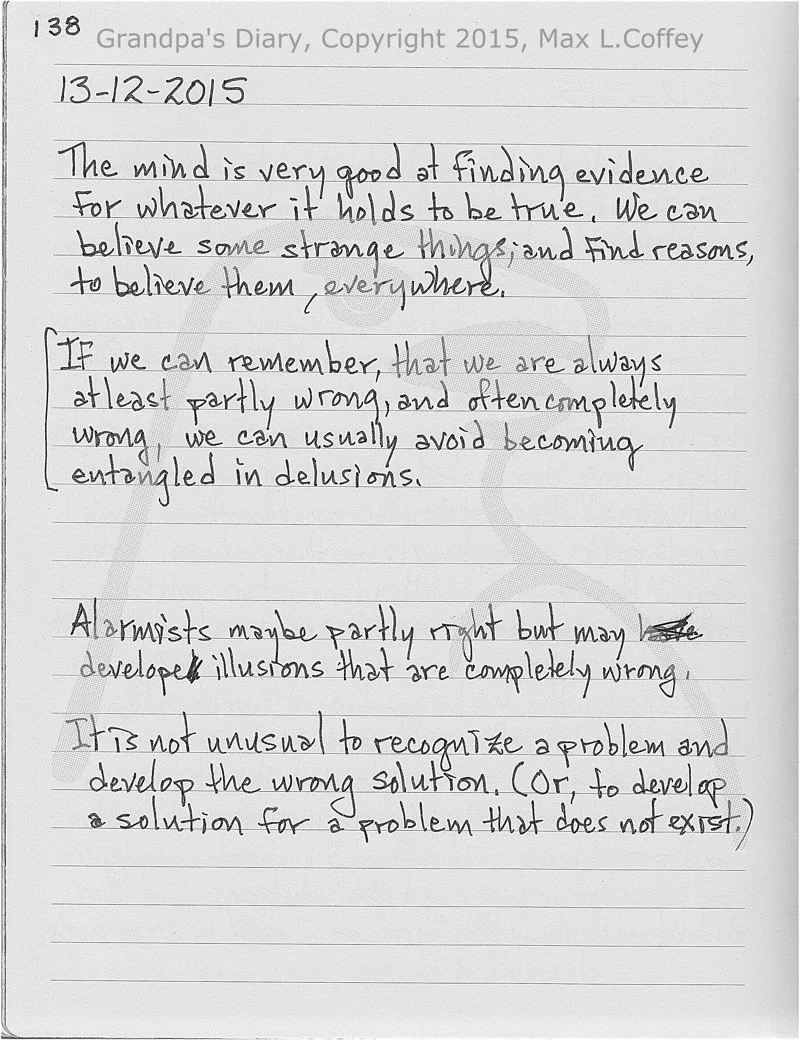 138
Grandpa's Diary, Copyright 2015, Max L.Coffey
13-12-2015
The mind is very good at finding evidence
for whatever it holds to be true. We can
believe some strange things; and find reasons,
to believe them, everywhere.
If we can remember, that we are always
at least partly wrong, and often completely
wrong, we can usually avoid becoming
entangled in delusions.
Alarmists maybe partly right but may
develope illusions that are completely wrong.
It is not unusual to recognize a problem and
develop the wrong solution. (Or, to develop
a solution for a problem that does not exist.)